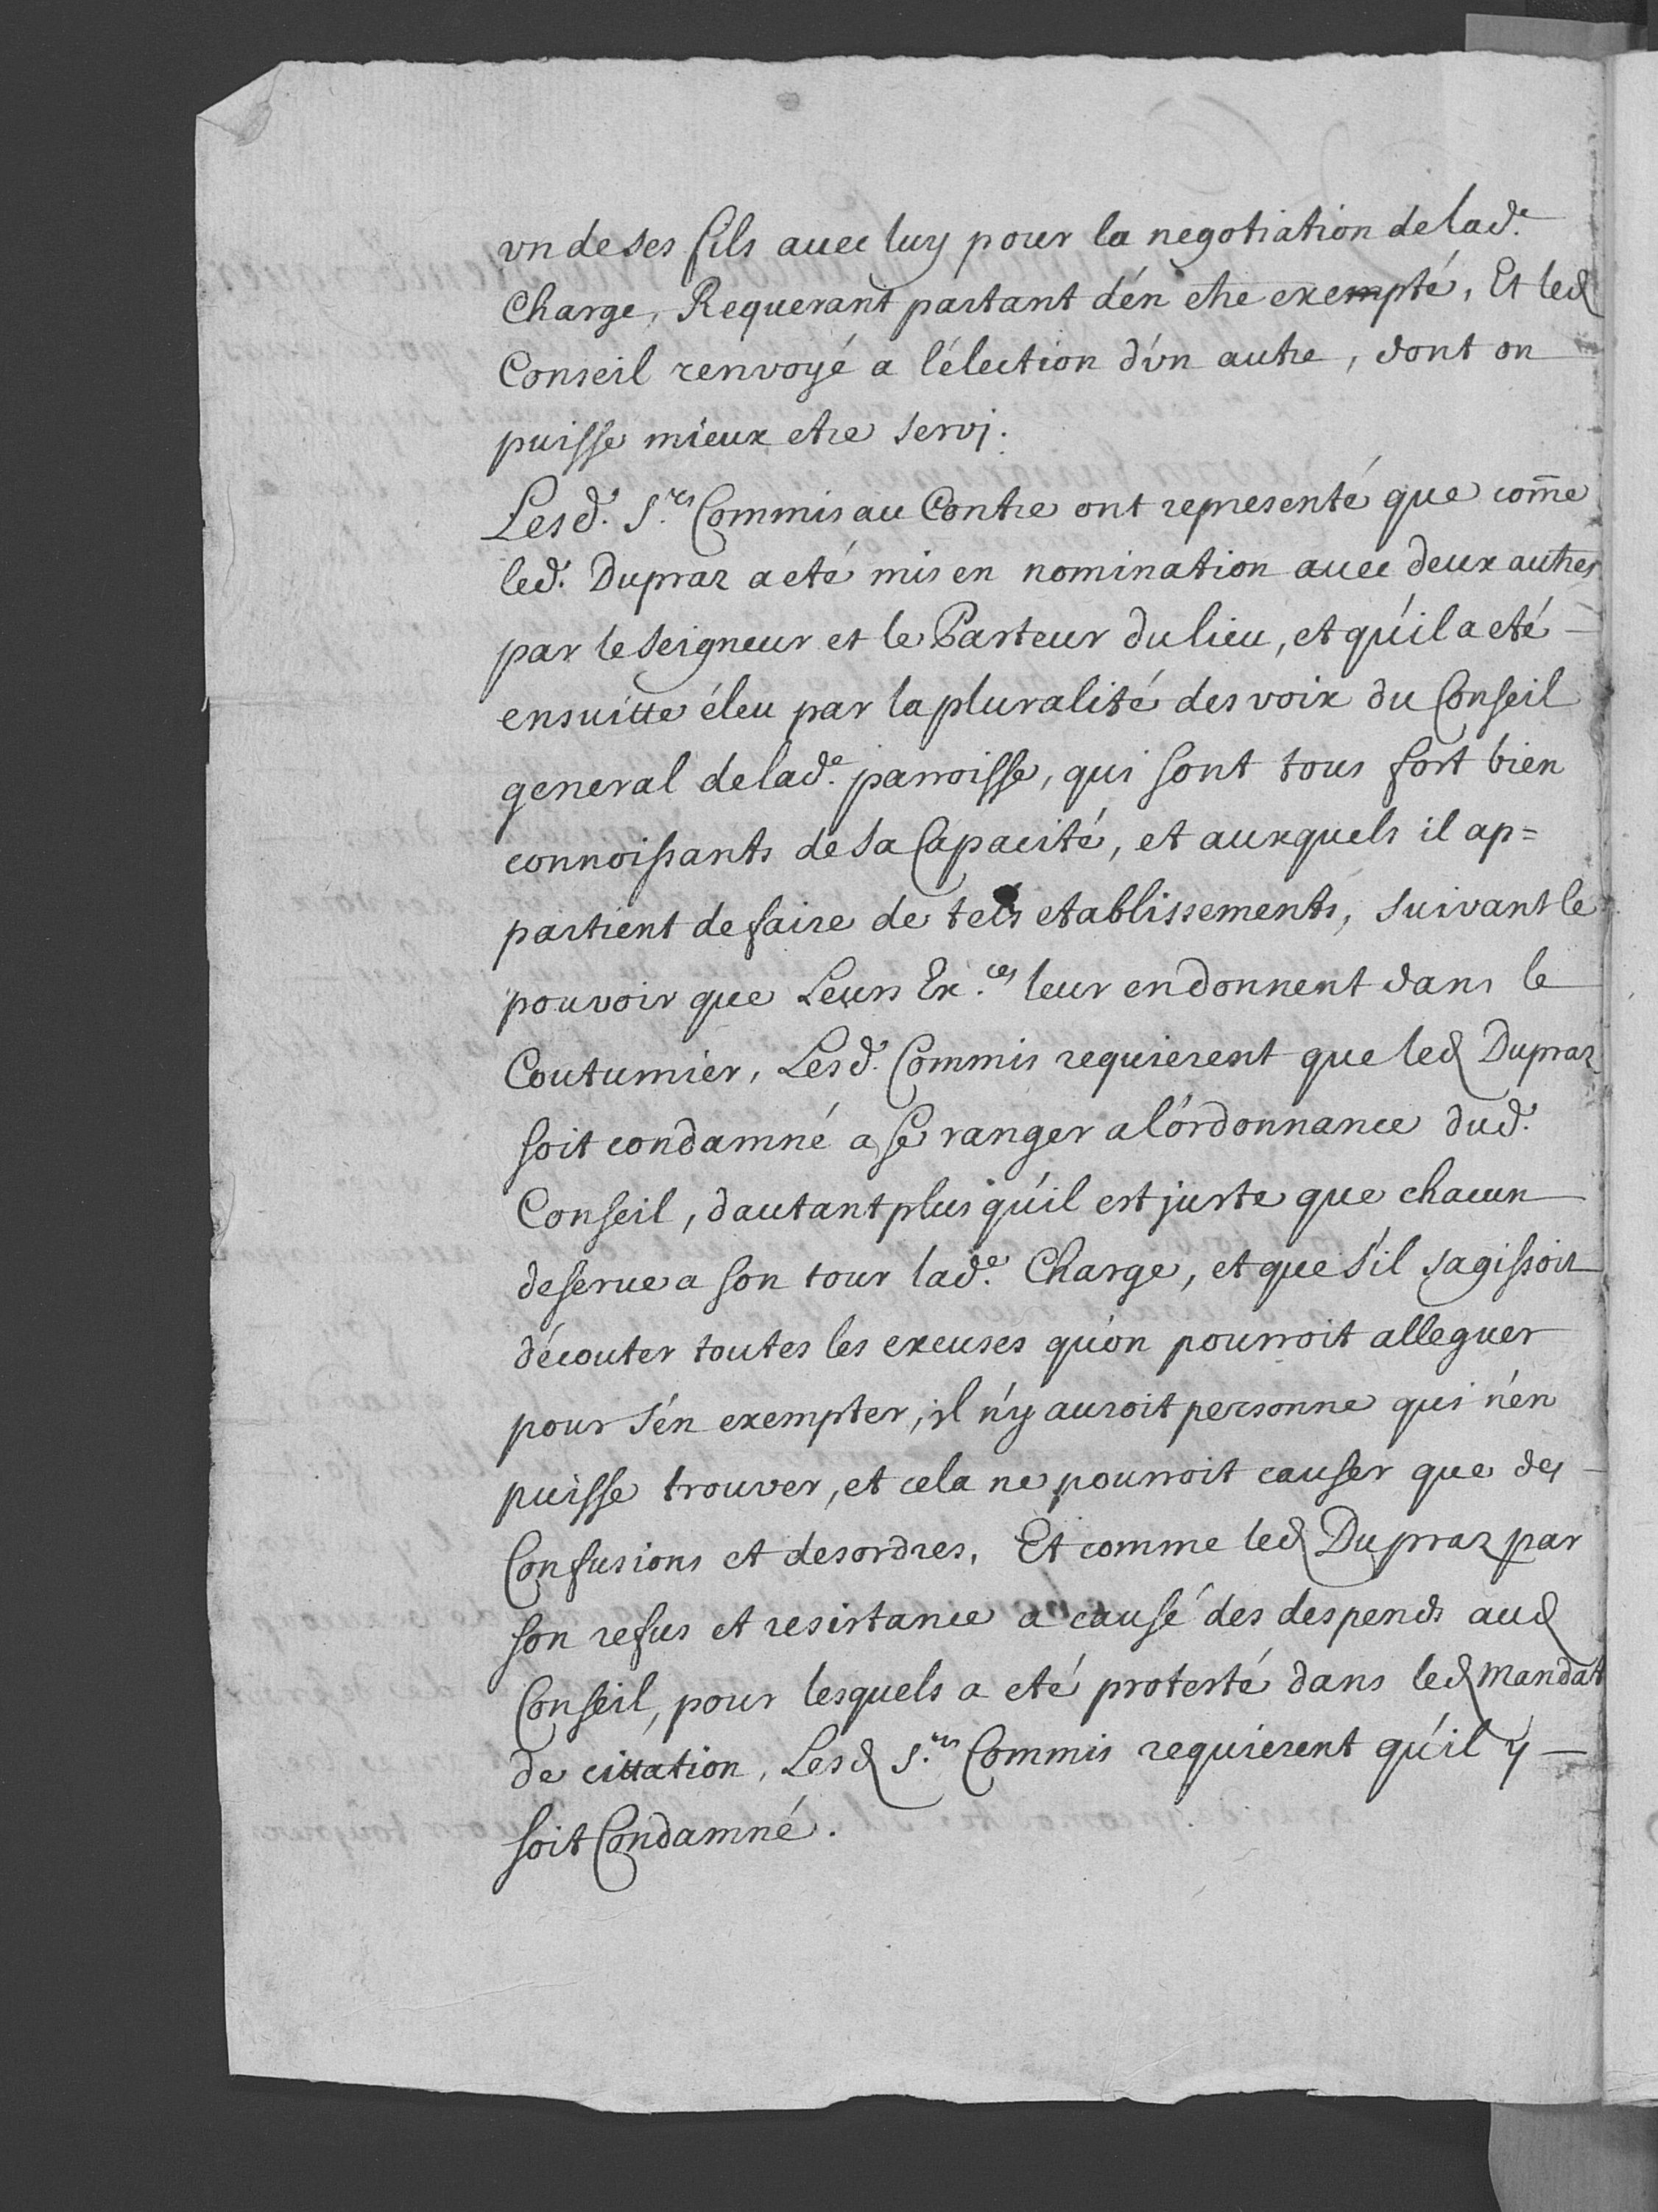 vn de ses fils auec luy pour la negotiation de lad.e
Charge, Requerant partant d'én etre exempté, Et led
Conseil renvoyé a l'élection d'vn autre, dont on
puisse mieux etre servj.
Lesd. S.rs Commis au Contre ont representé que com̄e
led. Dupraz a eté mis en nomination auec deux autres
par le seigneur et le Pasteur du lieu, et qu'il a eté
ensuitte éleu par la pluralité des voix du Conseil
general de lad.e parroisse, qui sont tous fort bien
connoissants de sa Capacité, et auxquels il ap=
partient de faire de tels etablissements, suivant le
pouvoir que Leurs Ex.ces leur en donnent dans le
Coutumier, Lesd. Commis requierent que led Dupraz
soit condamné a se ranger a l'ordonnance dud.
Conseil, dautant plus qu'il est juste que chacun
deserue a son tour lad.e Charge, et que s'il sagissoit
d'écouter toutes les excuses qu'on pourroit alleguer
pour s'én exempter, il n'y auroit personne qui n'én
puisse trouver, et cela ne pourroit causer que des
Confusions et desordres, Et comme led Dupraz par
son refus et resistance a causé des despends aud
Conseil, pour lesquels a eté protesté dans led mandat
de cittation, Lesd S.rs Commis requierent qu'il y
soit Condamné.